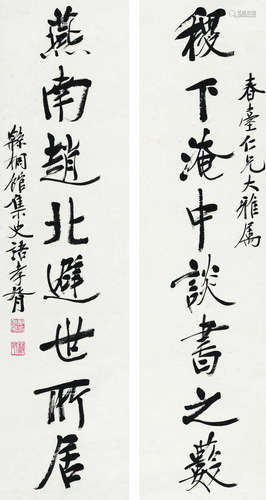 春臺仁兄大雅属
稷下淹中談書之藪
燕南趙北避世所居
桐館集史語孝胥